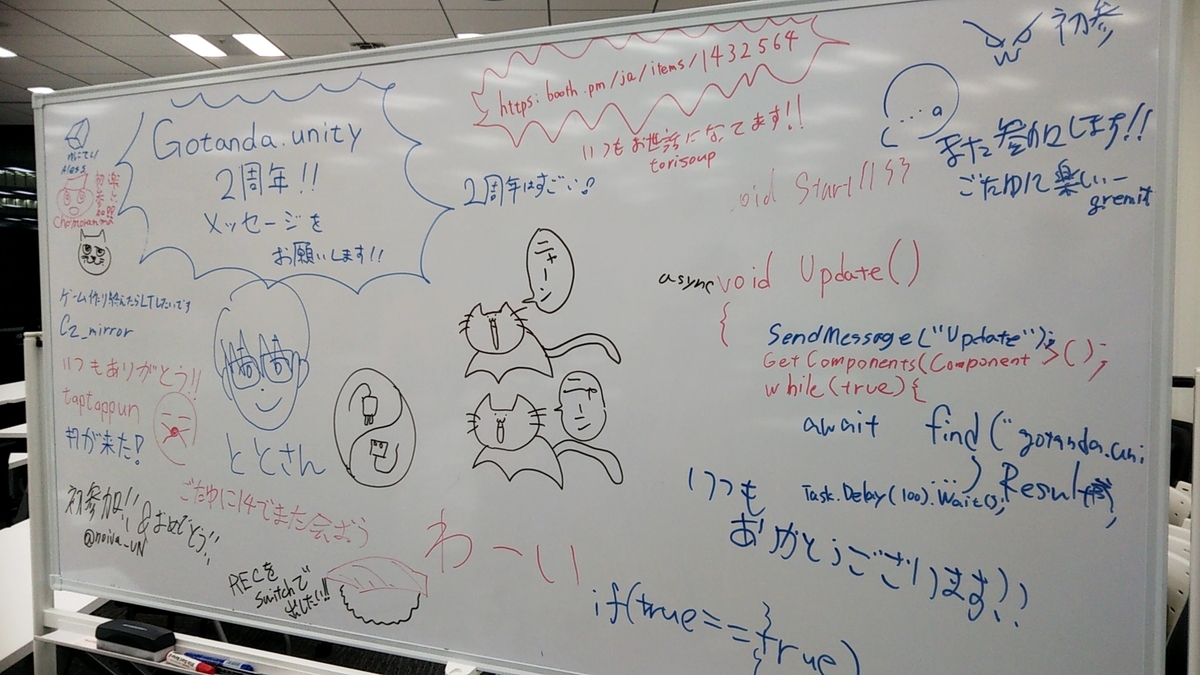 Gotanda.unity
2周年!!
メッセージを
お願いします!!
https:booth.pm/ja/items/1432564
いつもお世話になってます!!
torisoup
2周年はすごい
初参
また参加します!!
ごたゆに楽しい
gremit
oid Start(){}
初参加
楽しい
ゲーム作り終えたらLTしたいです
C2_mirror
いつもありがとう!!
taptappun
が来た!
ととさん
ニャーン
ニャーン
async void Update()
{
SendMessage("Update");
GetComponents(Component>();
while(true){
await find("gotanda.uni
Task.Delay(100).Wait();
).Result
いつも
ありがとうございます!!
ごたゆに14でまた会おう
初参加!!&おめでとう!!
@noiva_UN
RECを
Switchで
出したい!!
わーい
if(true==true)
}